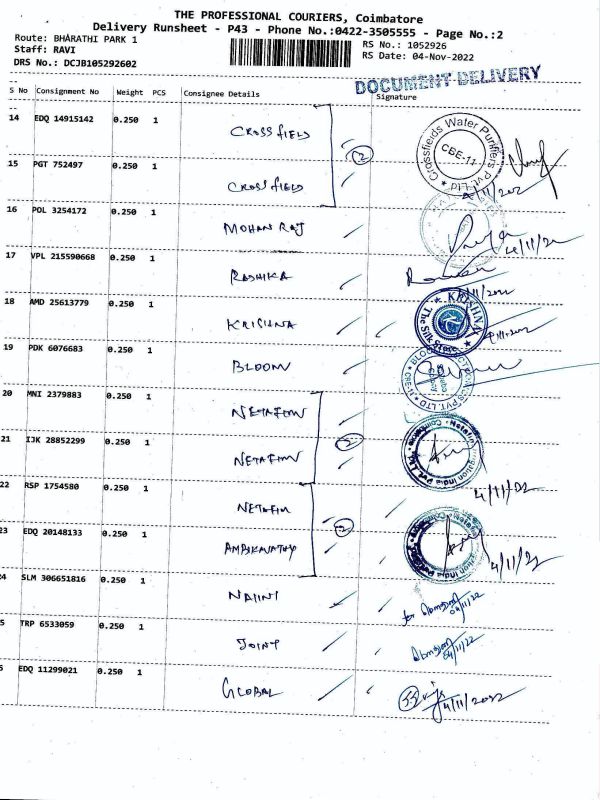 THE PROFESSIONAL COURIERS, Coimbatore
Delivery Runsheet - P43 - Phone No.:0422-3505555 - Page No.:2
Route: BHARATHI PARK 1
RS No.: 1052926
Staff: RAVI
RS Date: 04-Nov-2022
DRS No.: DCJB105292602
DOCUMENT DELIVERY
S No Consignment No Weight PCS Consignee Details Signature
14 EDQ 14915142 0.250 1 CROSSFIELD
Crossfields Water Purifiers Pvt. Ltd
CBE-11
2
15 PGT 752497 0.250 1 CROSSFIELD
16 POL 3254172 0.250 1 MOHAN RAJ
17 VPL 215590668 0.250 1 RADHIKA
18 AMD 25613779 0.250 1 KRISHNA
KRISHNA
The Silk
19 PDK 6076683 0.250 1 BLOOM
20 MNI 2379883 0.250 1 NETAFIM
2
21 IJK 28852299 0.250 1 NETAFIM
4/11/22
22 RSP 1754580 0.250 1 NETAFIM
2
23 EDQ 20148133 0.250 1 AMBIKAVATHY
4/11/22
4 SLM 306651816 0.250 1 NALINI
for
04/11/22
5 TRP 6533059 0.250 1 JOINT
04/11/22
6 EDQ 11299021 0.250 1 GLOBAL
4/11/2022